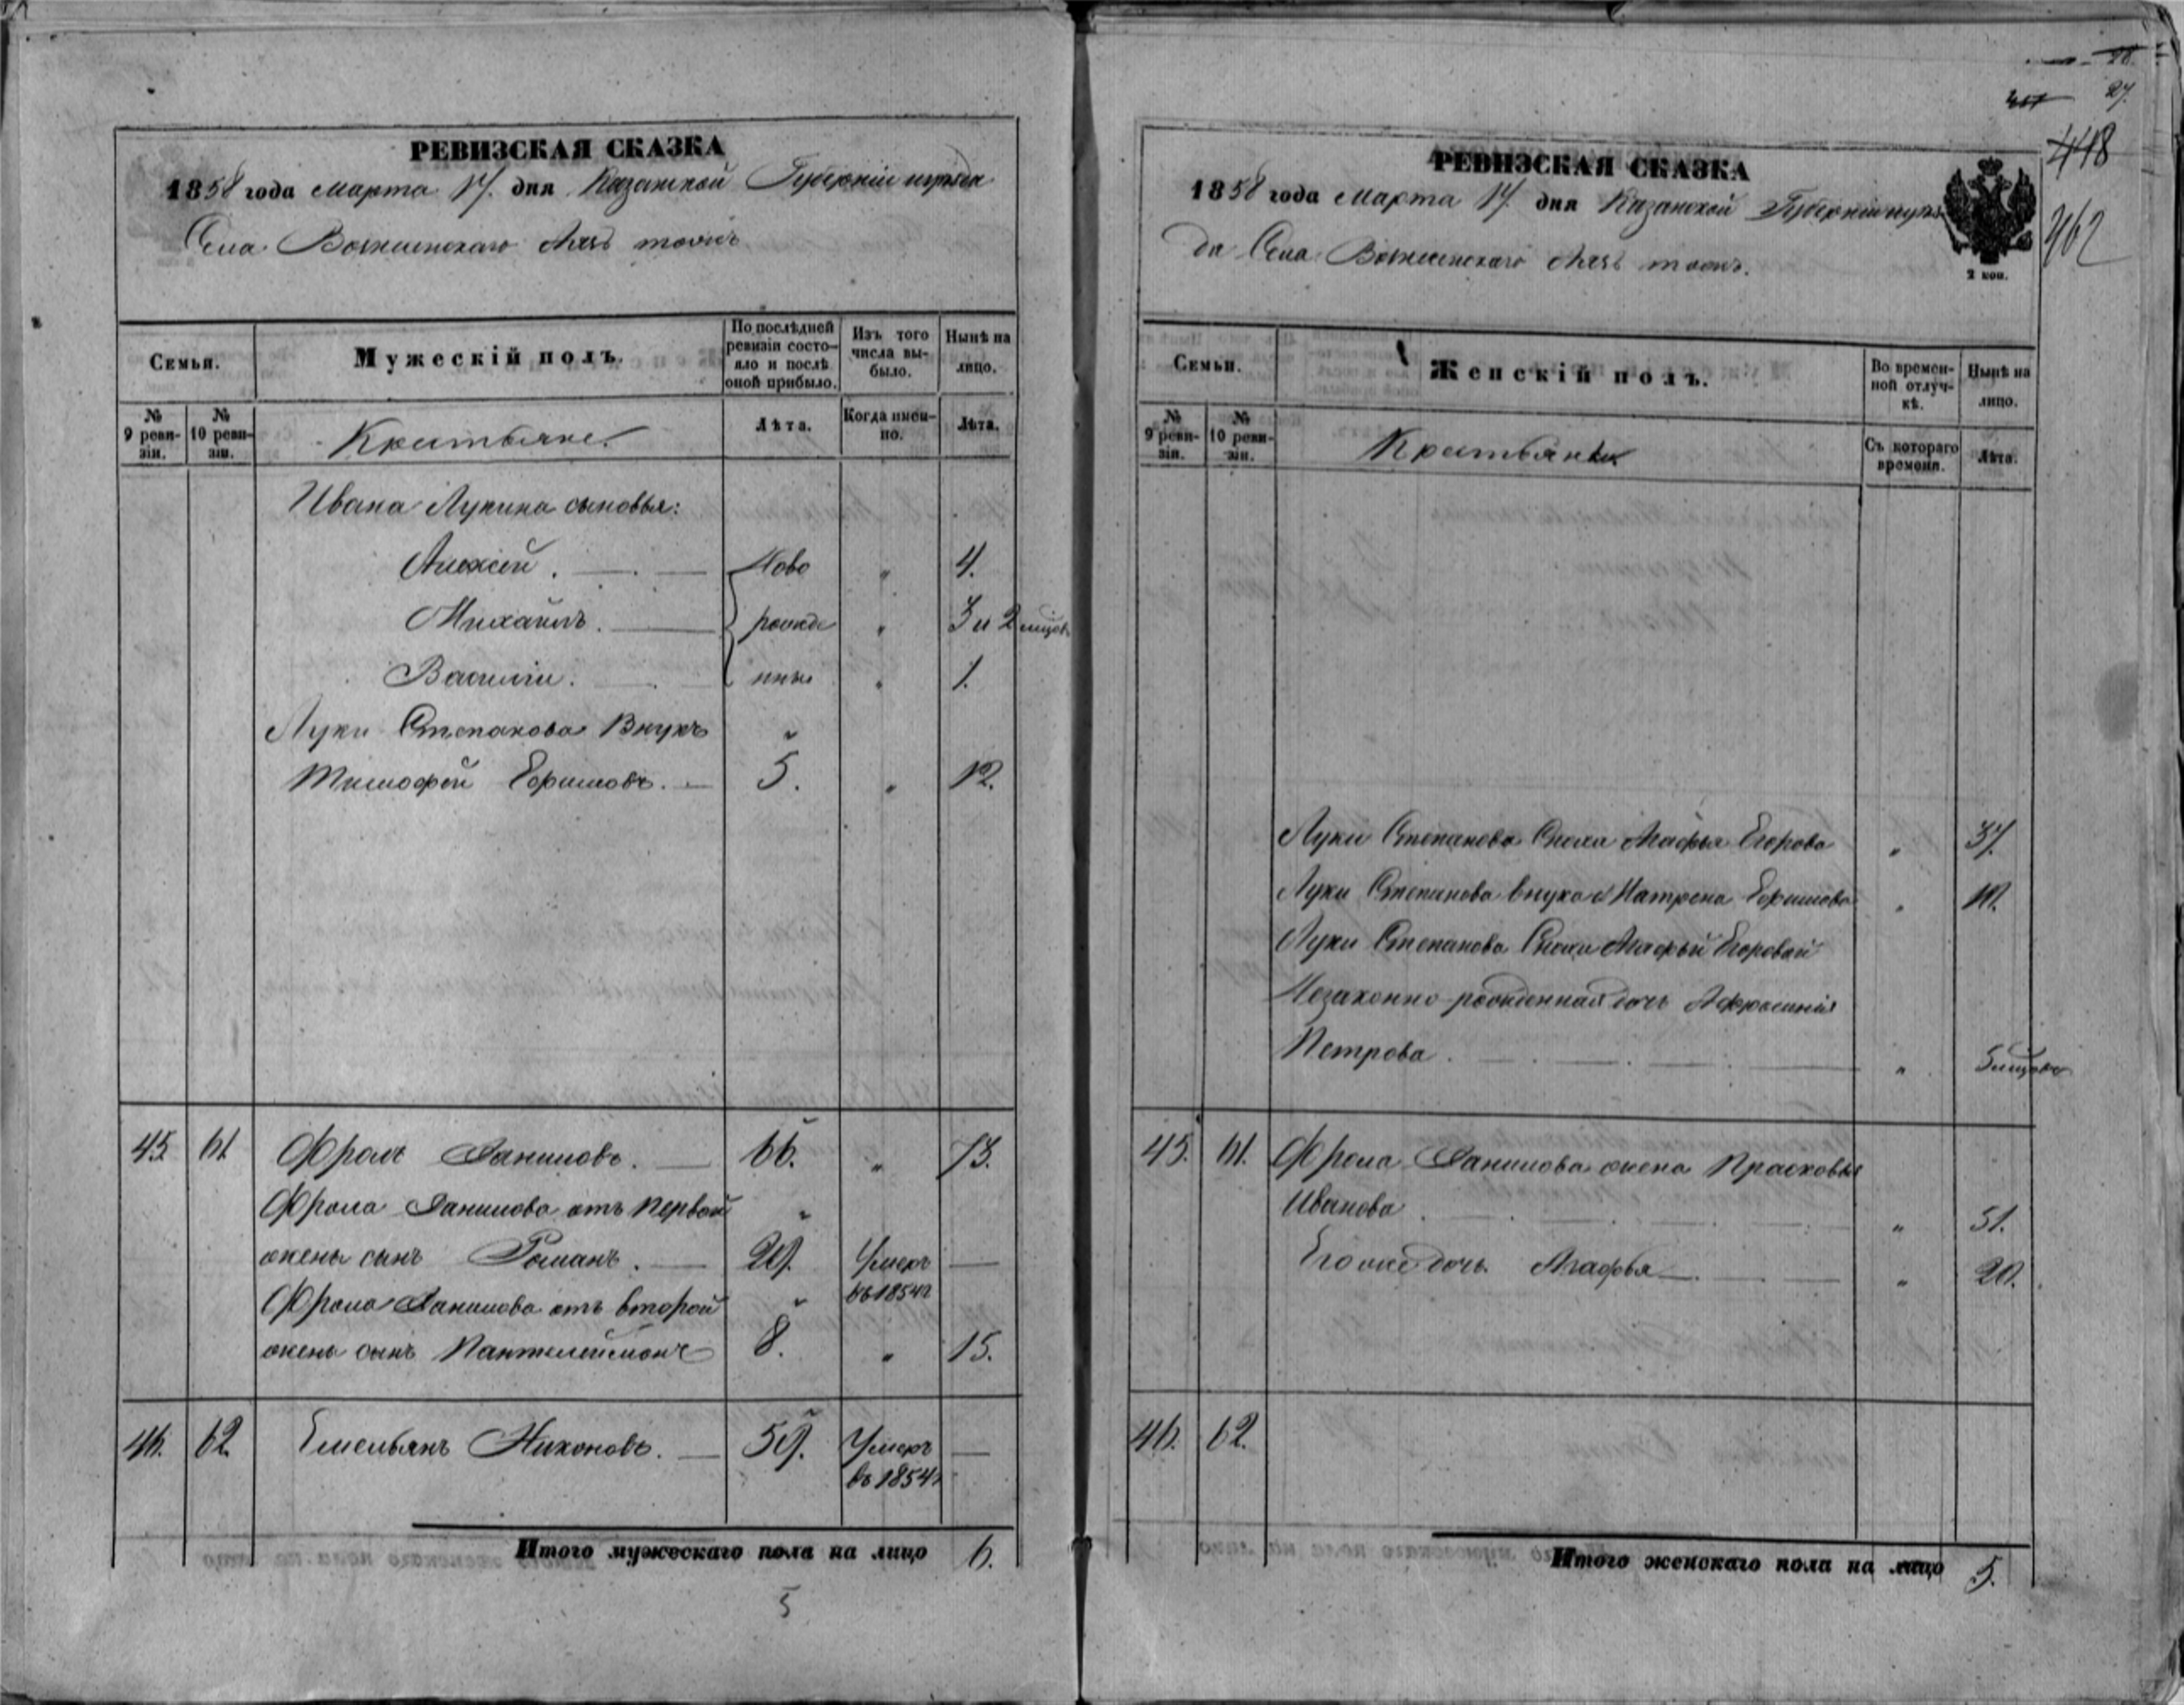 РЕВИЗСКАЯ СКАЗКА
1858 года Марта 17. дня Казанской Губерніи и уѣзда
Села Вознесенскаго тожъ
Семьи.
Мужескій полъ.
По послѣдней ревизіи состояло и послѣ оной прибыло.
Изъ того числа выбыло.
Нынѣ на лицо.
№ 9 ревизіи.
№ 10 ревизіи.
Крестьяне.
Лѣта.
Когда именно.
Лѣта.
Ивана Лукина сыновья:
Алексей. Ново " 4.
Михаилъ. рожде " 3 и 2 месец
Василіи. нны " 1.
Луки Степанова Внукъ "
Тимофей Ефимовъ. 5. " 12.
45. 61. Фролъ Даниловъ. 66. " 73.
Фрола Данилова отъ первой "
жены сынъ Романъ. 29. Умеръ —
Фрола Данилова отъ второй " въ 1854г
жены сынъ Пантелеймонъ 8. " 15.
46. 62. Емельянъ Никоновъ. 59. Умеръ —
въ 1854г
Итого мужескаго пола на лицо 6.
5
28.
27.
448
462
РЕВИЗСКАЯ СКАЗКА
1858 года Марта 17. дня Казанской Губерніи и уѣз
да Села Вознесенскаго тожъ.
2 коп.
Семьи.
Женскій полъ.
Во временной отлучкѣ.
Нынѣ на лицо.
№ 9 ревизіи.
№ 10 ревизіи.
Крестьянки
Съ котораго времени.
Лѣта.
Луки Степанова Сноха Агафья Егорова " 37.
Луки Степанова внука Матрена Ефимова "
Луки Степанова Снохи Агафьи Егоровой
Незаконно-рожденная дочь Афросинія
Петрова. " 5 месецов
45. 61. Фрола Данилова жена Прасковья
Иванова. " 51.
Его же дочь Агафья " 20.
46. 62.
Итого женскаго пола на лицо 5.